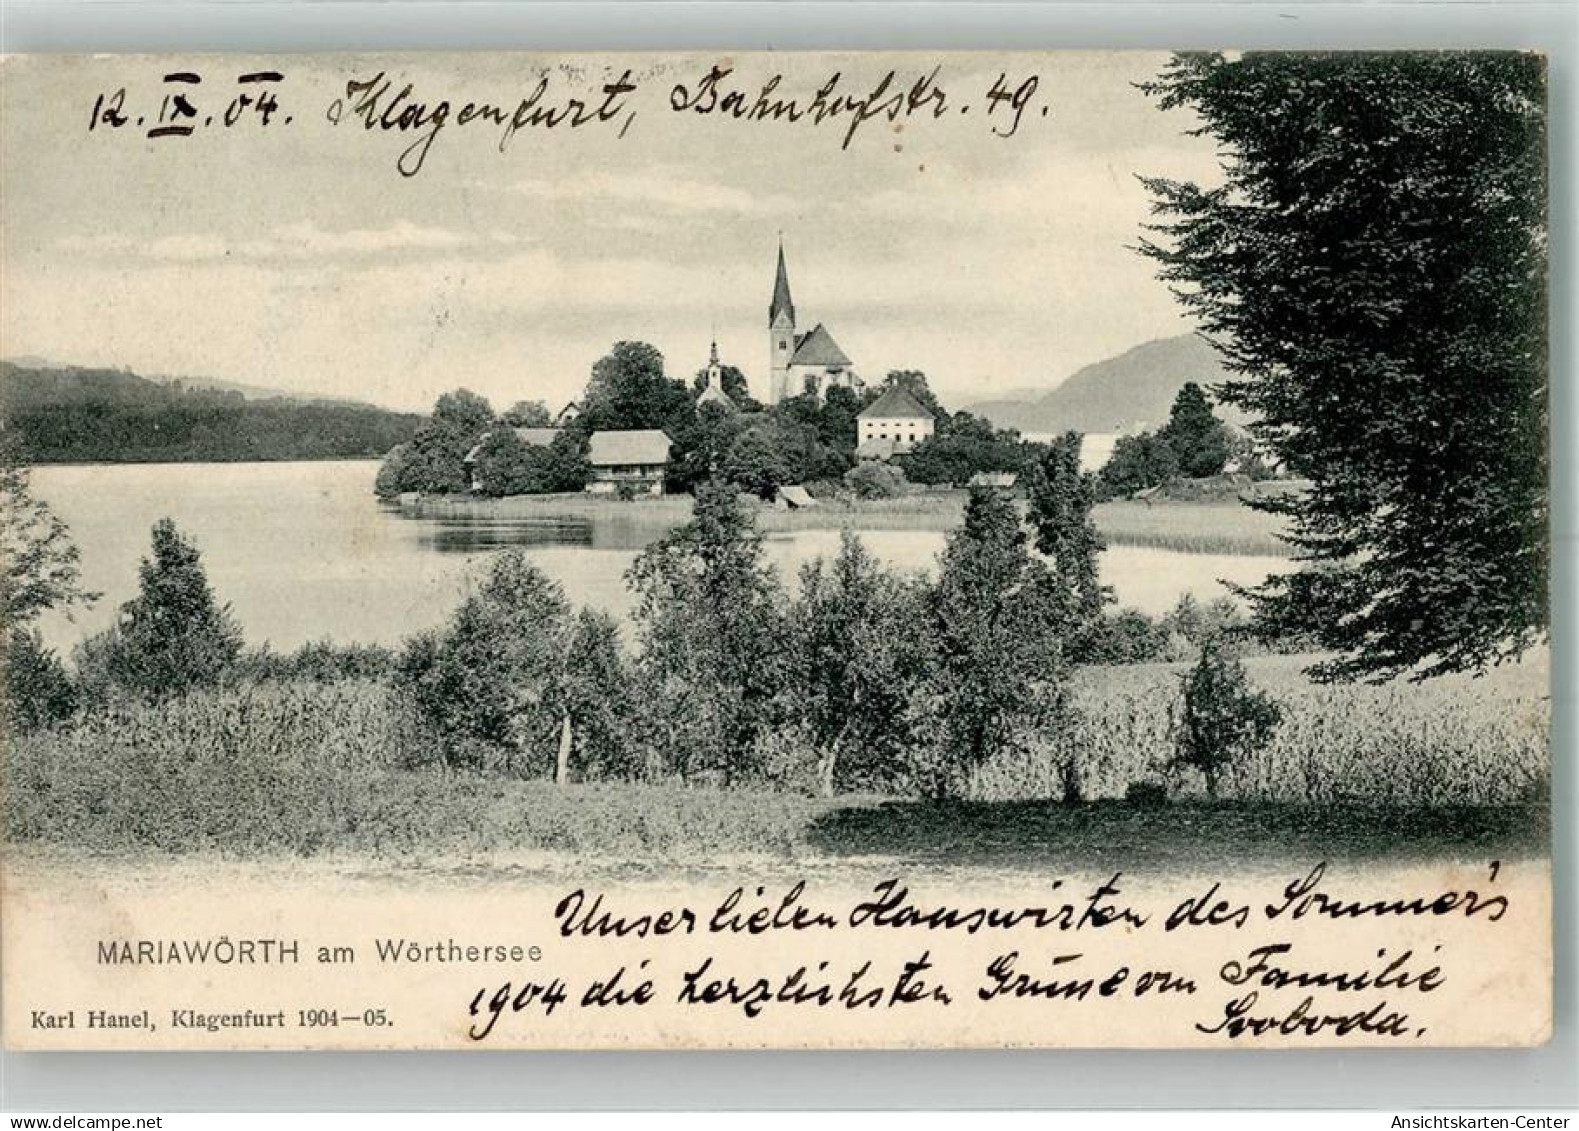 12. IX. 04. Klagenfurt, Bahnhofstr. 49.
Unser lieben Hauswirten des Sommer's
1904 die herzlichsten Grüße von Familie
Svoboda.
MARIAWÖRTH am Wörthersee
Karl Hanel, Klagenfurt 1904—05.
www.delcampe.net
Ansichtskarten-Center